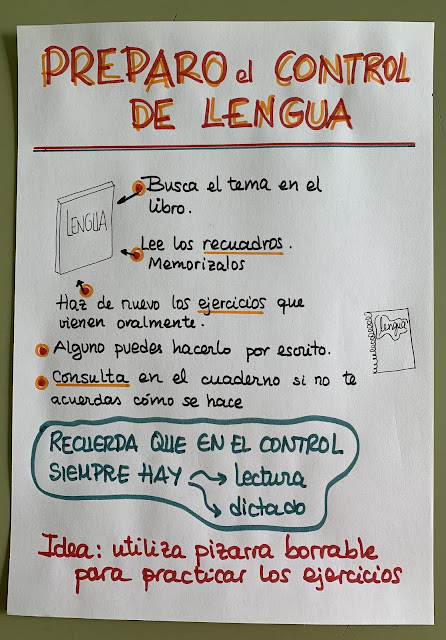 PREPARO el CONTROL
DE LENGUA
LENGUA
Busca el tema en el
libro.
Lee los recuadros.
Memorizalos
Haz de nuevo los ejercicios que
vienen oralmente.
Alguno puedes hacerlo por escrito.
Consulta en el cuaderno si no te
acuerdas cómo se hace
lengua
RECUERDA QUE EN EL CONTROL
SIEMPRE HAY lectura
dictado
Idea: utiliza pizarra borrable
para practicar los ejercicios